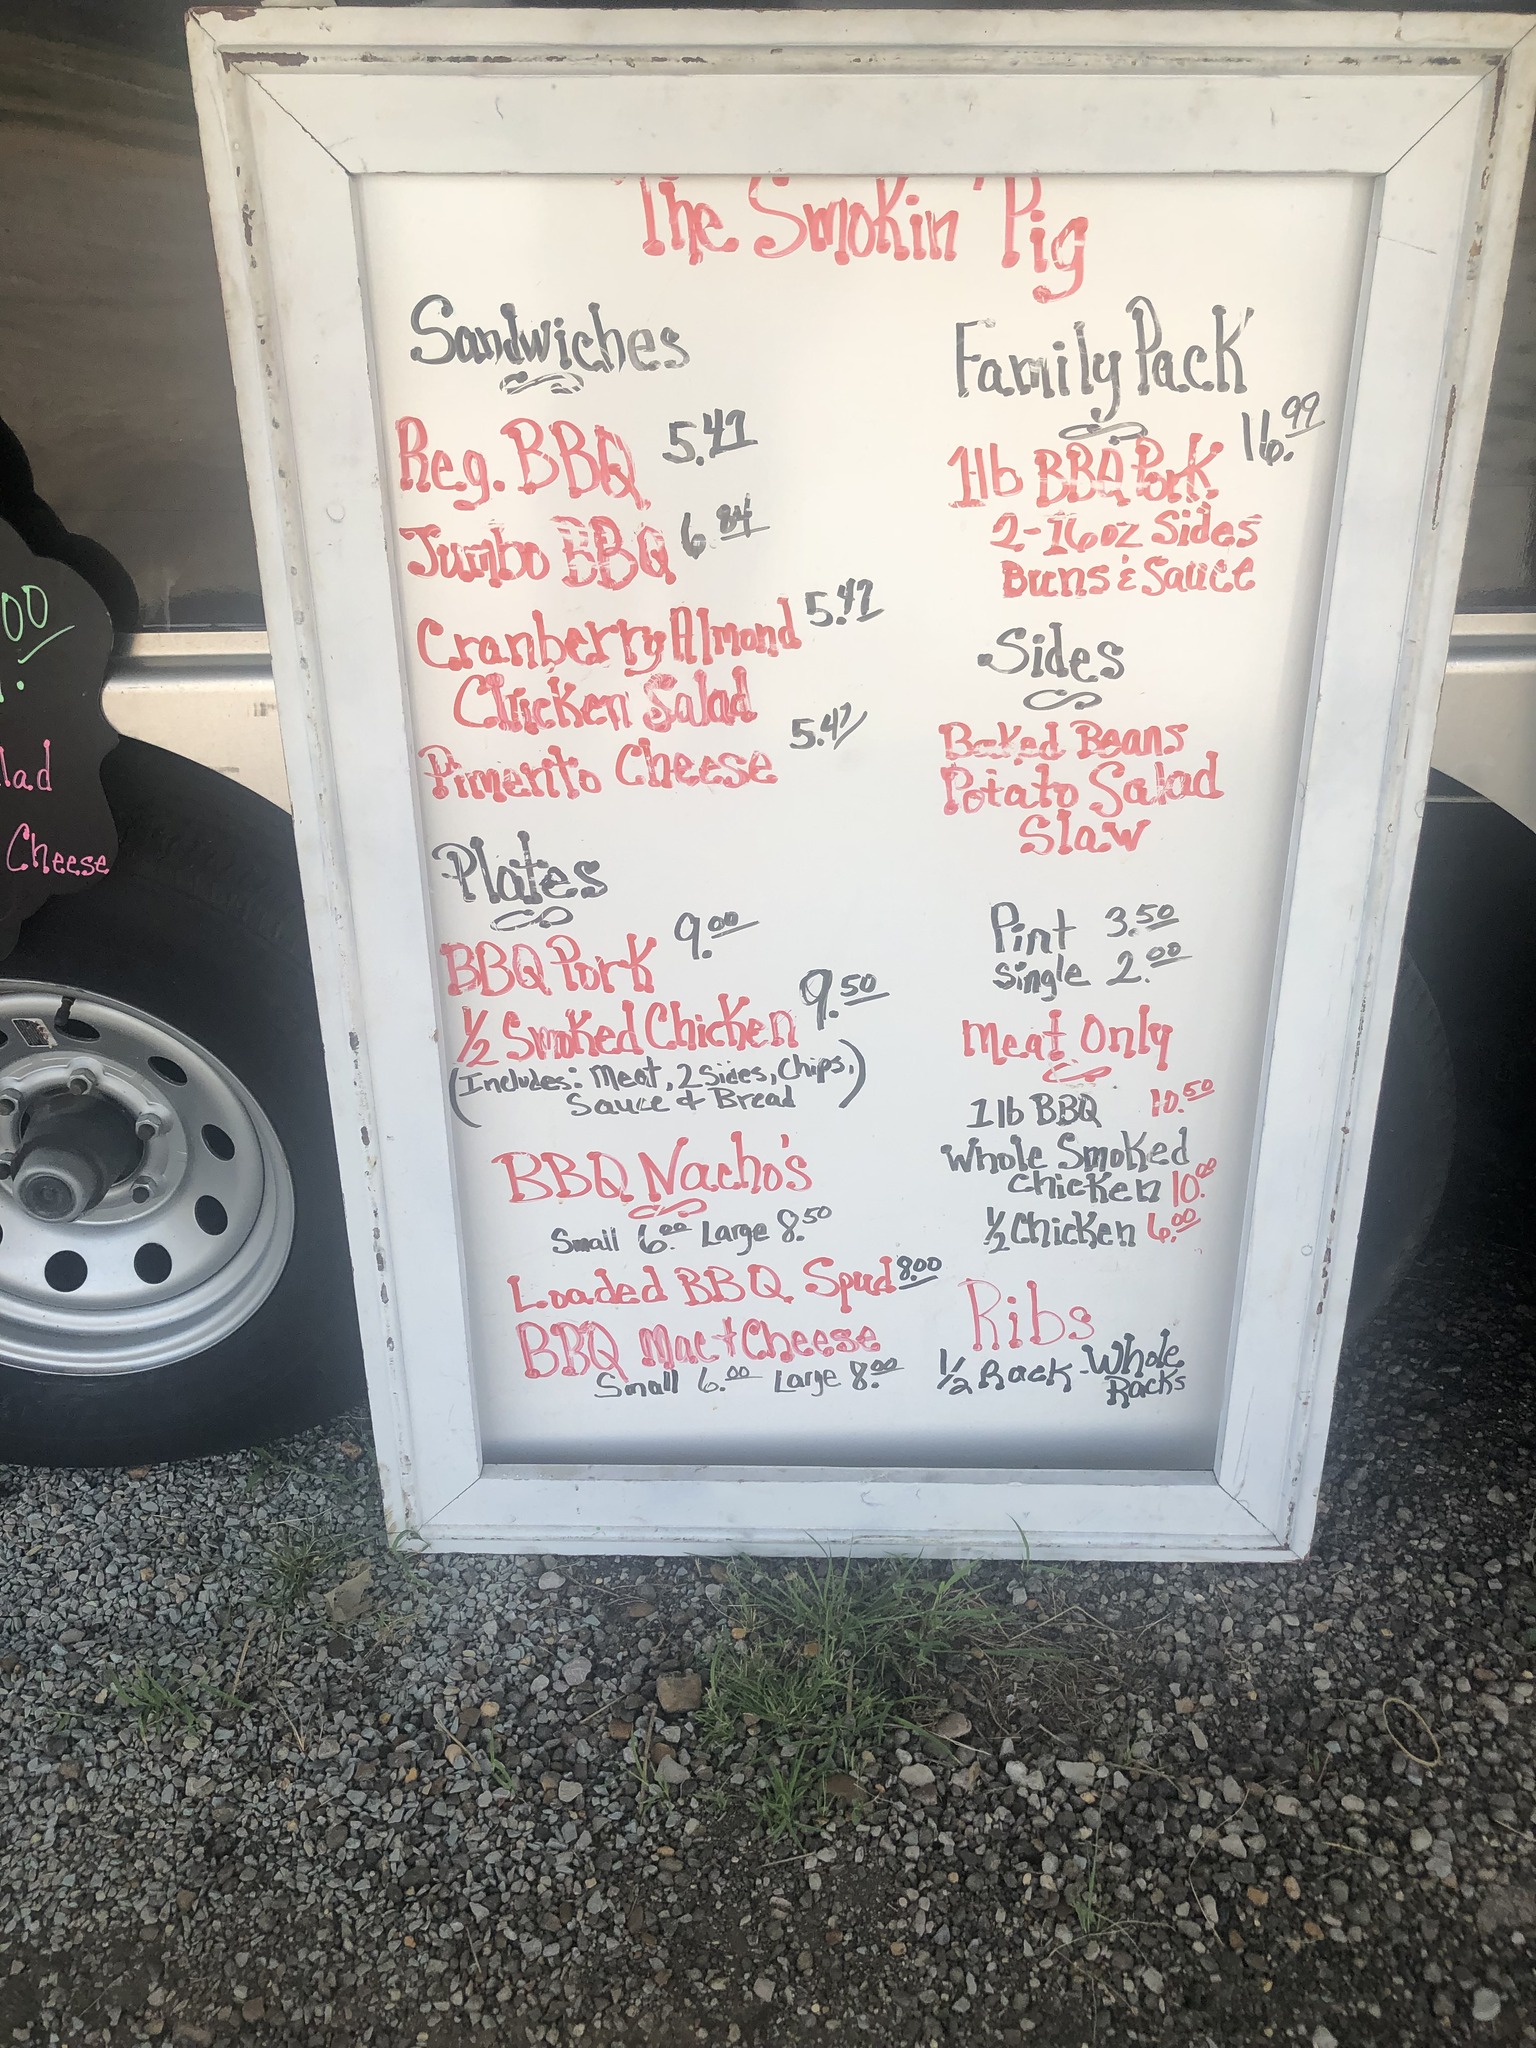 The Smokin' Pig
Sandwiches
Reg. BBQ 5.47
Jumbo BBQ 6.84
Cranberry Almond 5.47
Chicken Salad
Pimento Cheese 5.47
Plates
BBQ Pork 9.00
1/2 Smoked Chicken 9.50
(Includes: Meat, 2 Sides, Chips,
Sauce + Bread)
BBQ Nacho's
Small 6.00 Large 8.50
Loaded BBQ Spud 8.00
BBQ Mac + Cheese
Small 6.00 Large 8.00
Family Pack
16.99
1lb BBQ Pork
2-16oz Sides
Buns & Sauce
Sides
Baked Beans
Potato Salad
Slaw
Pint 3.50
Single 2.00
Meat Only
1lb BBQ 10.50
Whole Smoked
Chicken 10.00
1/2 Chicken 6.00
Ribs
1/2 Rack - Whole
Racks
00
lad
Cheese